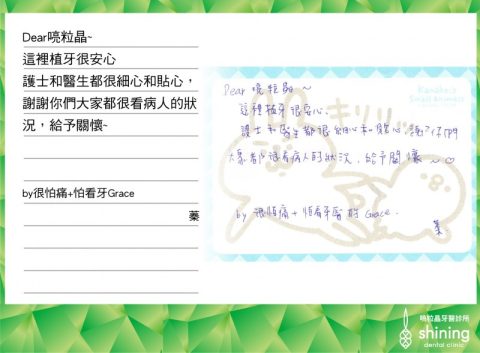 Dear喨粒晶~
這裡植牙很安心
護士和醫生都很細心和貼心，
謝謝你們大家都很看病人的狀
況，給予關懷~
by很怕痛+怕看牙Grace
蓁
Kanahei's
Small animals
キリッ
Dear 喨粒晶 ~
這裡植牙很安心。
護士和醫生都很細心和貼心，謝謝你們
大家都很看病人的狀況，給予關懷 ~ ♡
by 很怕痛 + 怕看牙醫的 Grace.
蓁
喨粒晶牙醫診所
shining
dental clinic